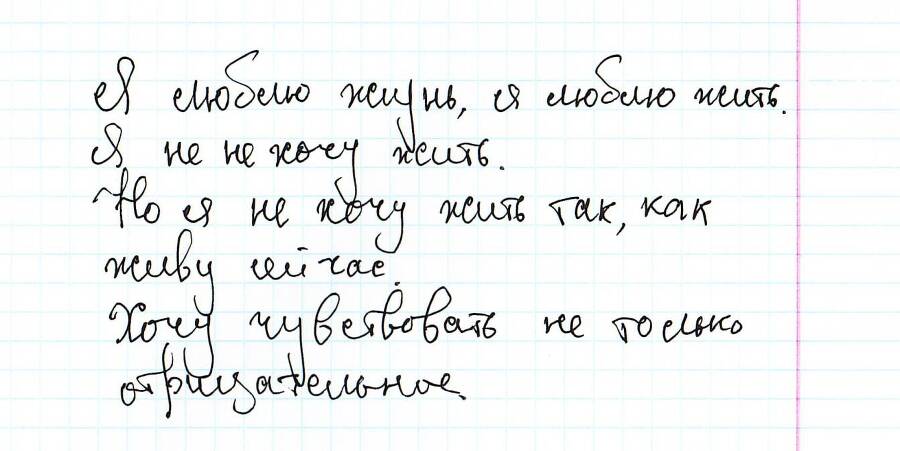 Я люблю жизнь, я люблю жить.
Я не не хочу жить.
Но я не хочу жить так, как
живу сейчас.
Хочу чувствовать не только
отрицательное.